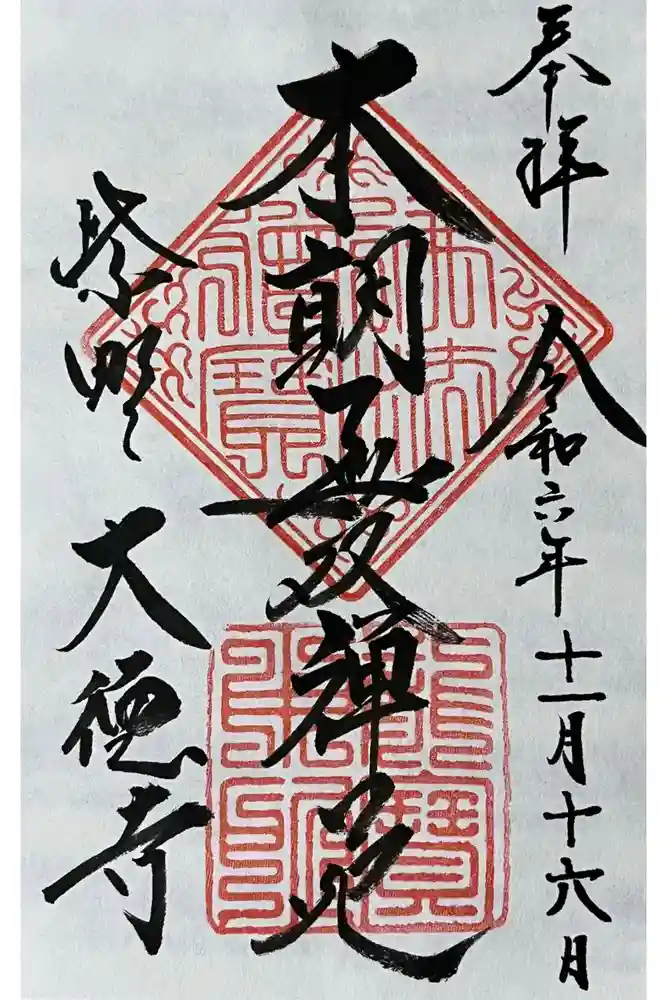 奉拝 令和六年十一月十六日
本朝無双禅苑
紫野 大徳寺
佛法
僧寶